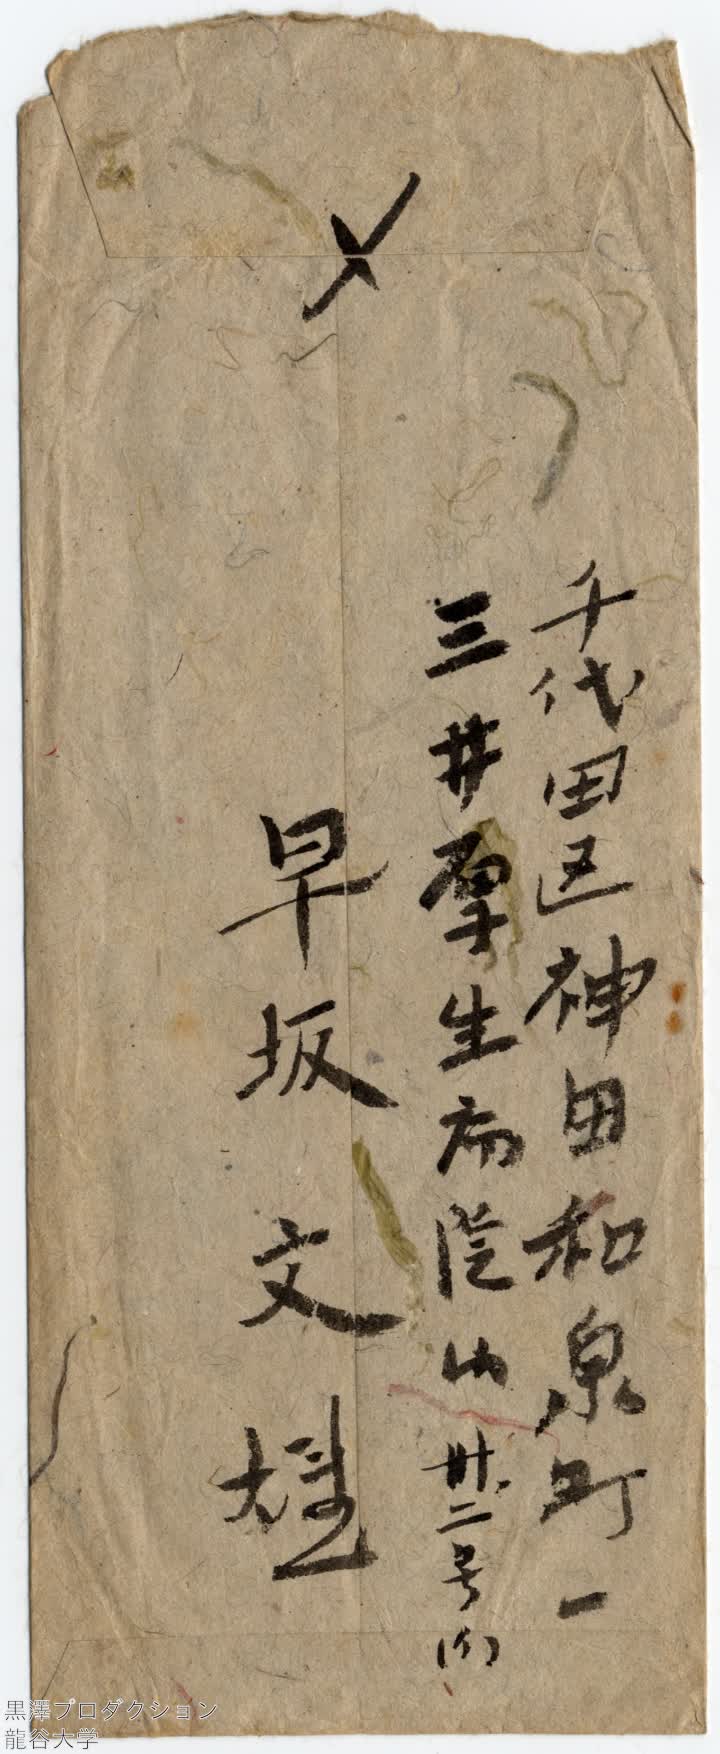 千代田区神田和泉町一
三井厚生病院内 卅二号内
早坂文雄
黒澤プロダクション
龍谷大学